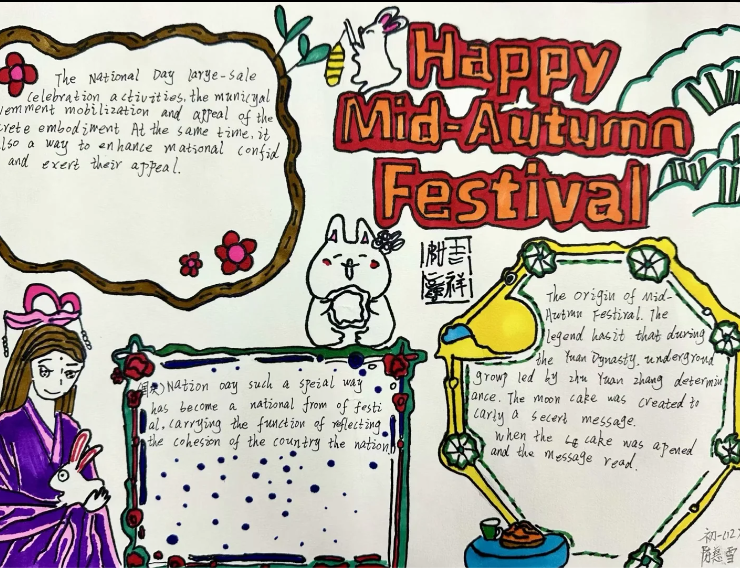 Happy
Mid-Autumn
Festival
The National Day large-sale
celebration activities. the municyal
vernment mobilization and appeal of the
crete embodiment At the same time. it
lso a way to enhance mational confid
and exert their appeal.
吉祥
The Origin of Mid-
Autmn Festiral. The
legend hasit that during
the Yuan Dynasty. undergrond
group led by zhu Yuan zhang determin
ance. The moon cake was created to
carly a secert message.
when the cake was apened
and the message read.
(国庆) Nation oay such a speial way
has become a national from of festi
al. carrying the function of reflecting
the cohesion of the country the nation
初一(12)